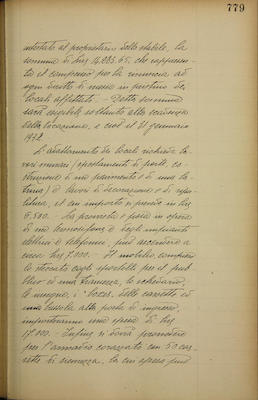 779
intestato al proprietario dello stabile, la
somma di Lire 14.285.65, che rappresen-
ta il compenso per la rinuncia ad
ogni diritto di
locali affittati. - Detta somma
sarà esigibile soltanto alla scadenza
della locazione, e cioè il 31 gennaio
L'adattamento dei locali richiede la-
vori murari (spostamenti di porte, co-
struzione di un pavimento e di una la-
trina) e lavori di decorazione e di
il cui importo si prevede in Lire
6.500. - La provvista e posa in opera
di un
elettrici e telefonici, può ascendere a
circa Lire 7.000. - Il mobilio, compreso
lo steccato cogli sportelli per il pub-
blico ed una tramezza, lo schedario,
le insegne, i
una bussola alla porta di ingresso,
importeranno una spesa di Lire
17.000. - Infine si dovrà provvedere
per l'armadio corazzato con 50 cas-
sette di sicurezza, la cui spesa può